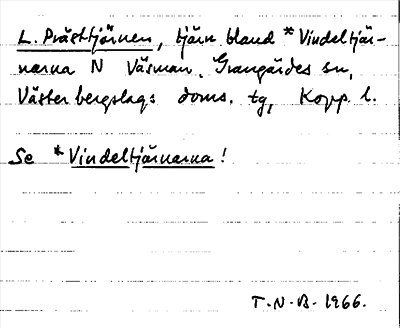 L. Prästtjärnen, tjärn bland *Vindeltjär-
narna N Väsman. Grangärdes sn,
Västerbergslags doms. tg, Kopp. l.
Se *Vindeltjärnarna!
T.N.B. 1966.